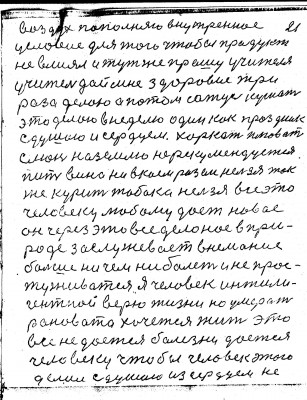 21
воздух пополняго внутренное
условие для того чтобы продукт
не влиял и тут же прошу учителя
учителя дай мне здоровие три
раза делаю а потом сажус кушат
это делаю в неделю один как праздник
с душою и сердцем. харкат плеват
слюн на землю не рекумендуется
пит вино ни в коем разе нелзя так
же курит табака нелзя все это
человеку любому дает новое
он через это все делоное в при-
роде заслужевает внемание
болше ни чем ни болет и не прос-
туживатся. Я человек интили-
гентной верю жизни но умерат
рановато хочется жит это
все не дается болезни дается
человеку чтобы человек этого
делал с душою из сердцем не